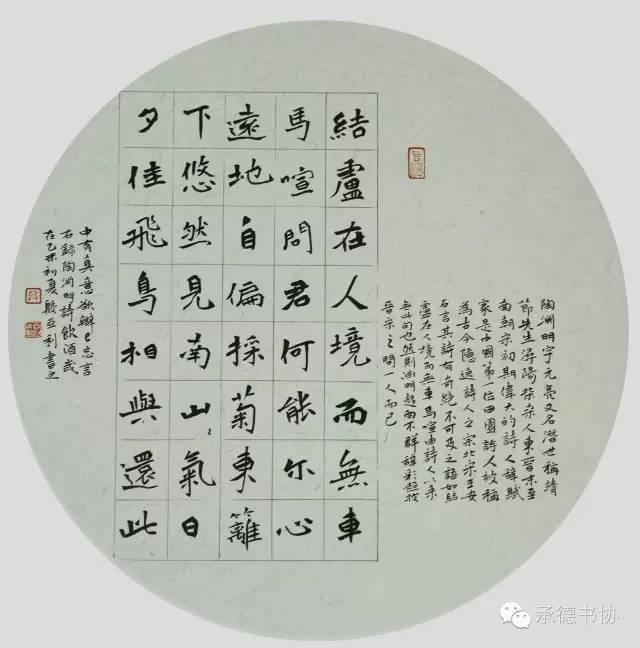 陶淵明字元亮又名潛世稱靖
節先生潯陽柴桑人東晉末至
南朝宋初期偉大的詩人辭賦
家是中國第一位田園詩人被稱
為古今隱逸詩人之宗北宋王安
石言其詩有奇絕不可及之語如結
盧在人境而無車馬喧由詩人以來
無此句也然則淵明趨向不群辭彩超拔
晉宋之間一人而已
結盧在人境而無車
馬喧問君何能尔心
遠地自偏採菊東籬
下悠然見南山〻氣日
夕佳飛鳥相與還此
中有真意欲辯已忘言
右錄陶淵明詩飲酒歲
在乙未初夏殷亞利書之
承德书协